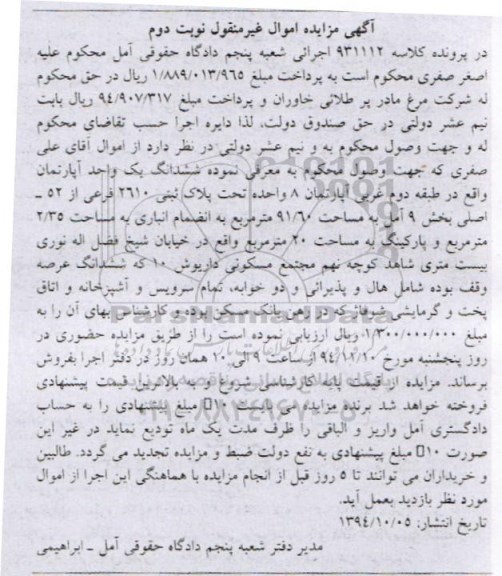 آگهی مزایده اموال غیرمنقول نوبت دوم
در پرونده کلاسه ۹۳۱۱۱۲ اجرائی شعبه پنجم دادگاه حقوقی آمل محکوم علیه
اصغر صفری محکوم است به پرداخت مبلغ ۱/۸۸۹/۰۱۳/۹۶۵ ریال در حق محکوم
له شرکت مرغ مادر پر طلائی خاوران و پرداخت مبلغ ۹۴/۹۰۷/۳۱۷ ریال بابت
نیم عشر دولتی در حق صندوق دولت، لذا دایره اجرا حسب تقاضای محکوم
له و جهت وصول محکوم به و نیم عشر دولتی در نظر دارد از اموال آقای علی
صفری که جهت وصول محکوم به معرفی نموده ششدانگ یک واحد آپارتمان
واقع در طبقه دوم غربی آپارتمان ۸ واحده تحت پلاک ثبتی ۲۶۱۰ فرعی از ۵۲ ـ
اصلی بخش ۹ آمل به مساحت ۹۱/۶۰ مترمربع به انضمام انباری به مساحت ۲/۳۵
مترمربع و پارکینگ به مساحت ۲۰ مترمربع واقع در خیابان شیخ فضل اله نوری
بیست متری شاهد کوچه نهم مجتمع مسکونی داریوش ۱۰ که ششدانگ عرصه
وقف بوده شامل هال و پذیرائی و دو خوابه، تمام سرویس و آشپزخانه و اتاق
پخت و گرمایشی شوفاژ که در رهن بانک مسکن بوده و کارشناس بهای آن را به
مبلغ ۱/۳۰۰/۰۰۰/۰۰۰ ریال ارزیابی نموده است را از طریق مزایده حضوری در
روز پنجشنبه مورخ ۹۴/۱۱/۱۰ از ساعت ۹ الی ۱۰ همان روز در دفتر اجرا بفروش
برساند. مزایده از قیمت پایه کارشناسی شروع و به بالاترین قیمت پیشنهادی
فروخته خواهد شد برنده مزایده می بایست ۱۰ مبلغ پیشنهادی را به حساب
دادگستری آمل واریز و الباقی را ظرف مدت یک ماه تودیع نماید در غیر این
صورت ۱۰ مبلغ پیشنهادی به نفع دولت ضبط و مزایده تجدید می گردد. طالبین
و خریداران می توانند تا ۵ روز قبل از انجام مزایده با هماهنگی این اجرا از اموال
مورد نظر بازدید بعمل آید.
تاریخ انتشار: ۱۳۹۴/۱۰/۰۵
مدیر دفتر شعبه پنجم دادگاه حقوقی آمل ـ ابراهیمی